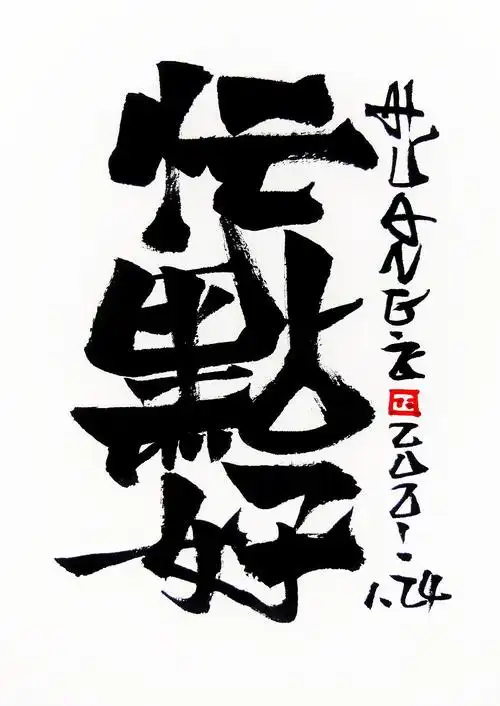 忙點好
HUANG
2021.
1.24